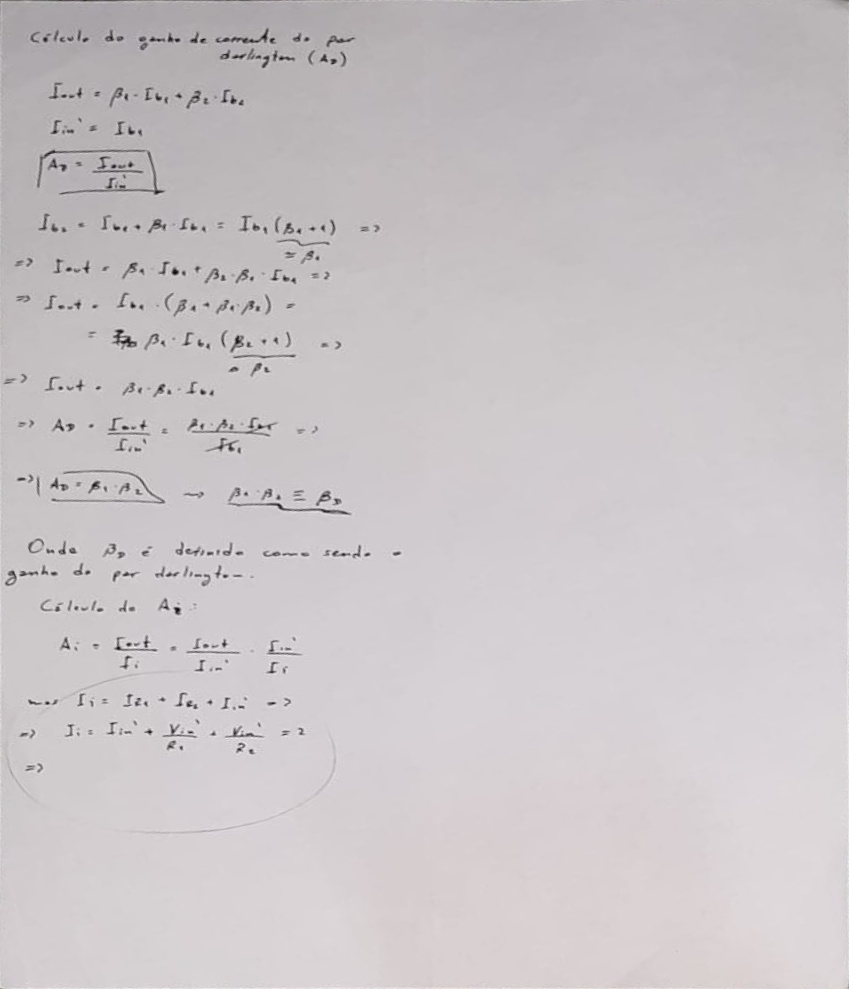 Cálculo do ganho de corrente do par
darlington (A_D)
I_out = β₁·I_b₁ + β₂·I_b₂
I_in' = I_b₁
A_D = I_out / I_in'
I_b₂ = I_b₁ + β₁·I_b₁ = I_b₁(β₁+1) =>
≈ β₁
=> I_out = β₁·I_b₁ + β₂·β₁·I_b₁ =>
=> I_out = I_b₁·(β₁+β₁·β₂) =
= β₁·I_b₁(β₂+1) =>
≈ β₂
=> I_out = β₁·β₂·I_b₁
=> A_D = I_out / I_in' = β₁·β₂·I_b₁ / I_b₁ =>
=> A_D = β₁·β₂ → β₁·β₂ ≡ β_D
Onde β_D é definido como sendo o
ganho do par darlington.
Cálculo do A_i:
A_i = I_out / I_i = I_out / I_in' · I_in' / I_i
mas I_i = I_R₁ + I_R₂ + I_in' =>
=> I_i = I_in' + V_in' / R₁ + V_in' / R₂ =>
=>